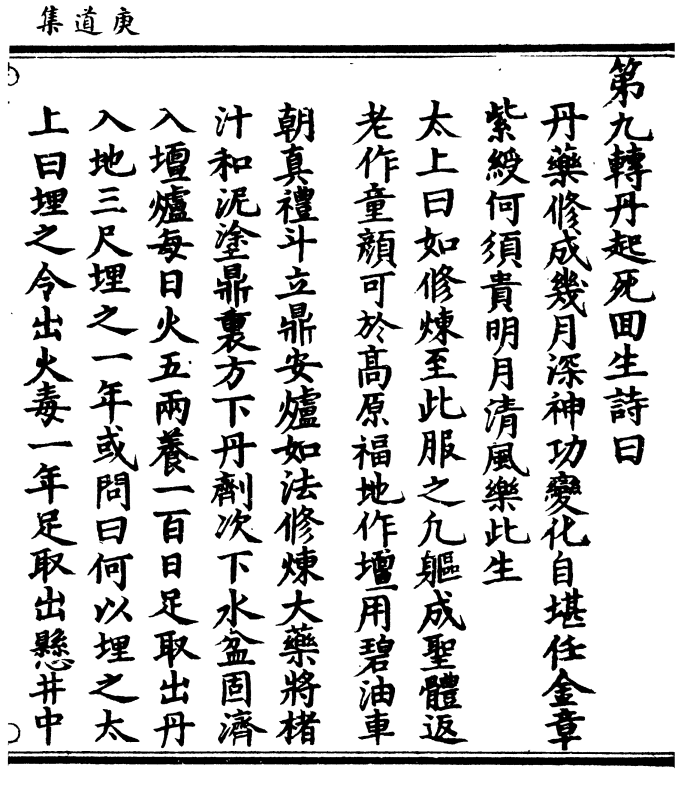 庚道集
第九轉丹起死回生詩曰
丹藥修成幾月深神功變化自堪任金章
紫綬何須貴明月清風樂此生
太上曰如修煉至此服之凢軀成聖體返
老作童顔可於高原福地作壇用碧油車
朝真禮斗立鼎安爐如法修煉大藥將楮
汁和泥塗鼎裏方下丹劑次下水盆固濟
入壇爐每日火五兩養一百日足取出丹
入地三尺埋之一年或問曰何以埋之太
上曰埋之令出火毒一年足取出懸井中